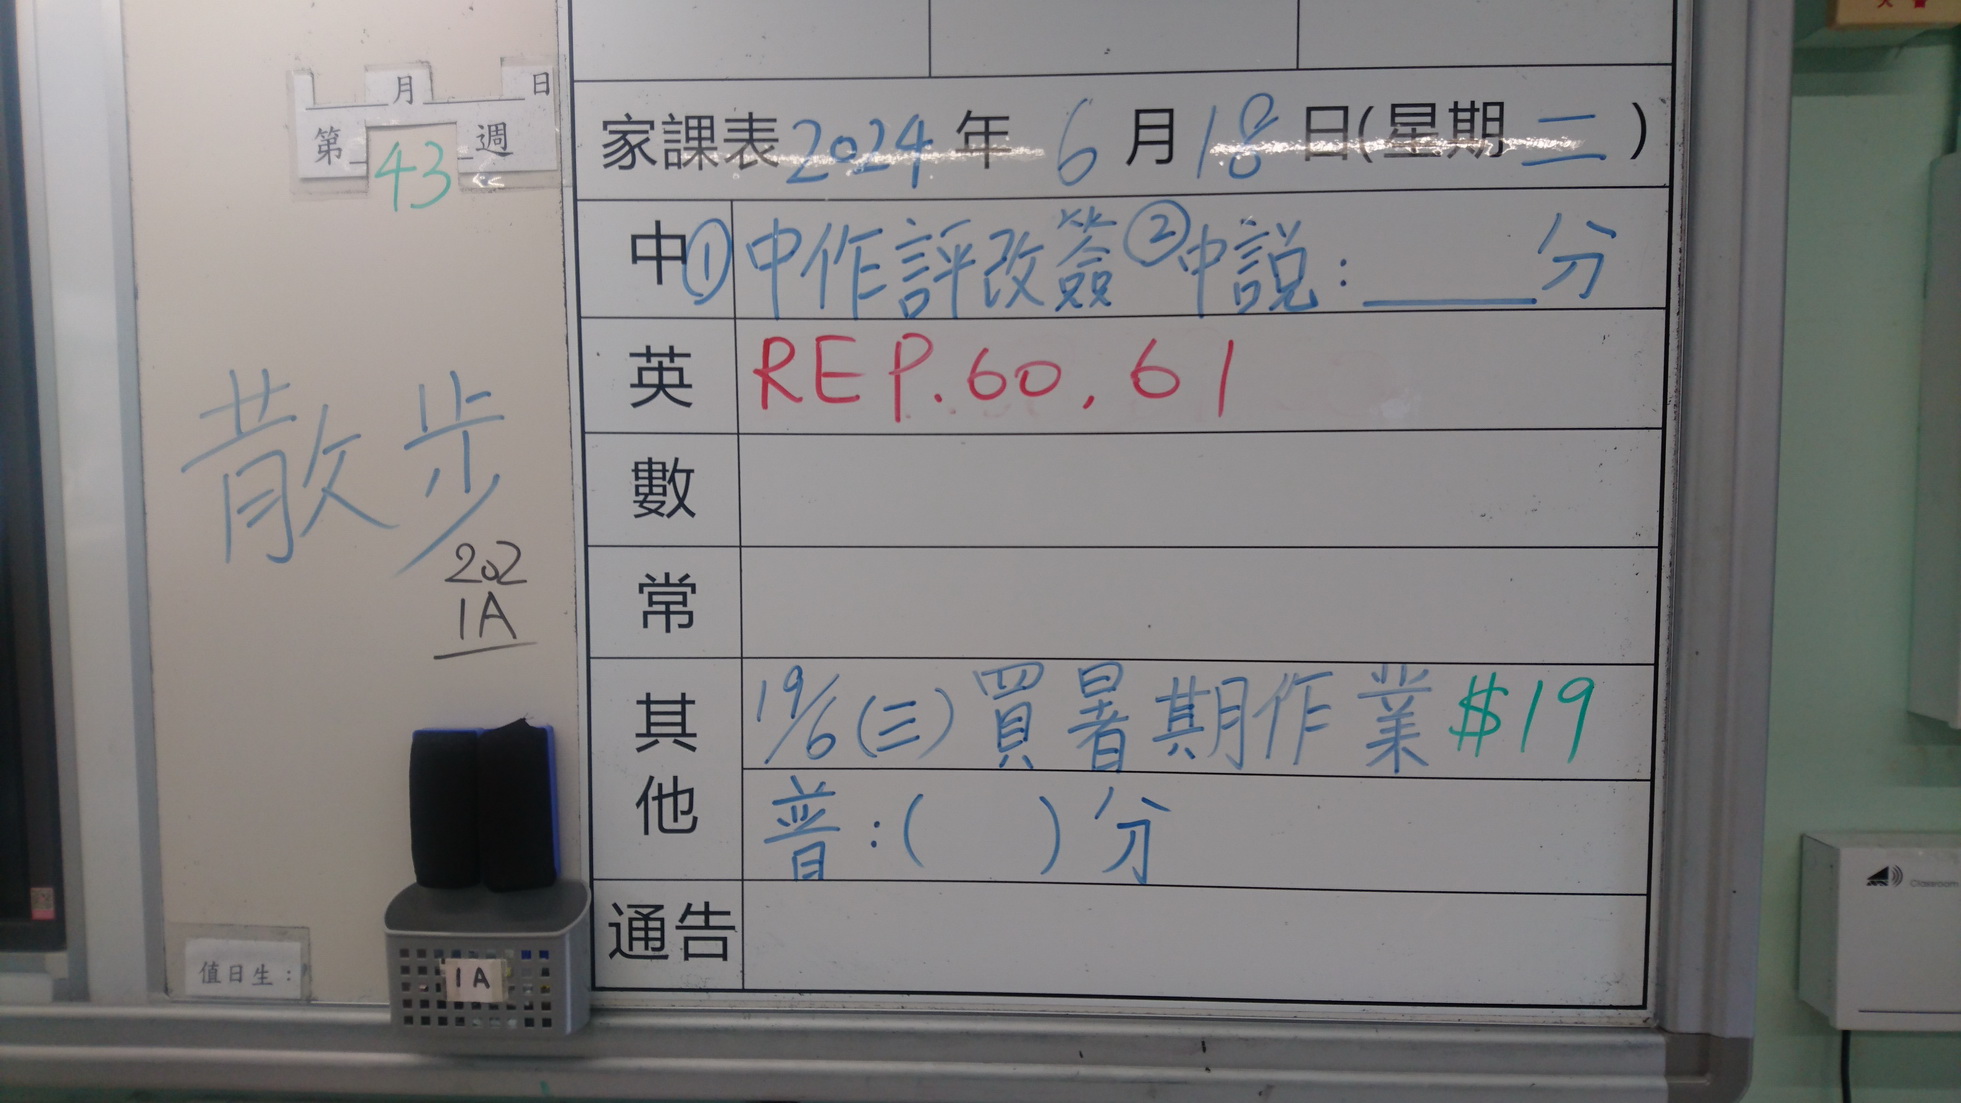 月 日
第 43 週
散步
202
1A
值日生:
1A
家課表 2024 年 6 月 18 日(星期 二 )
中 ①中作評改簽 ②中説:____分
英 RE P.60, 61
數
常
其他 19/6(三)買暑期作業 $19
普:( )分
通告
Classroom